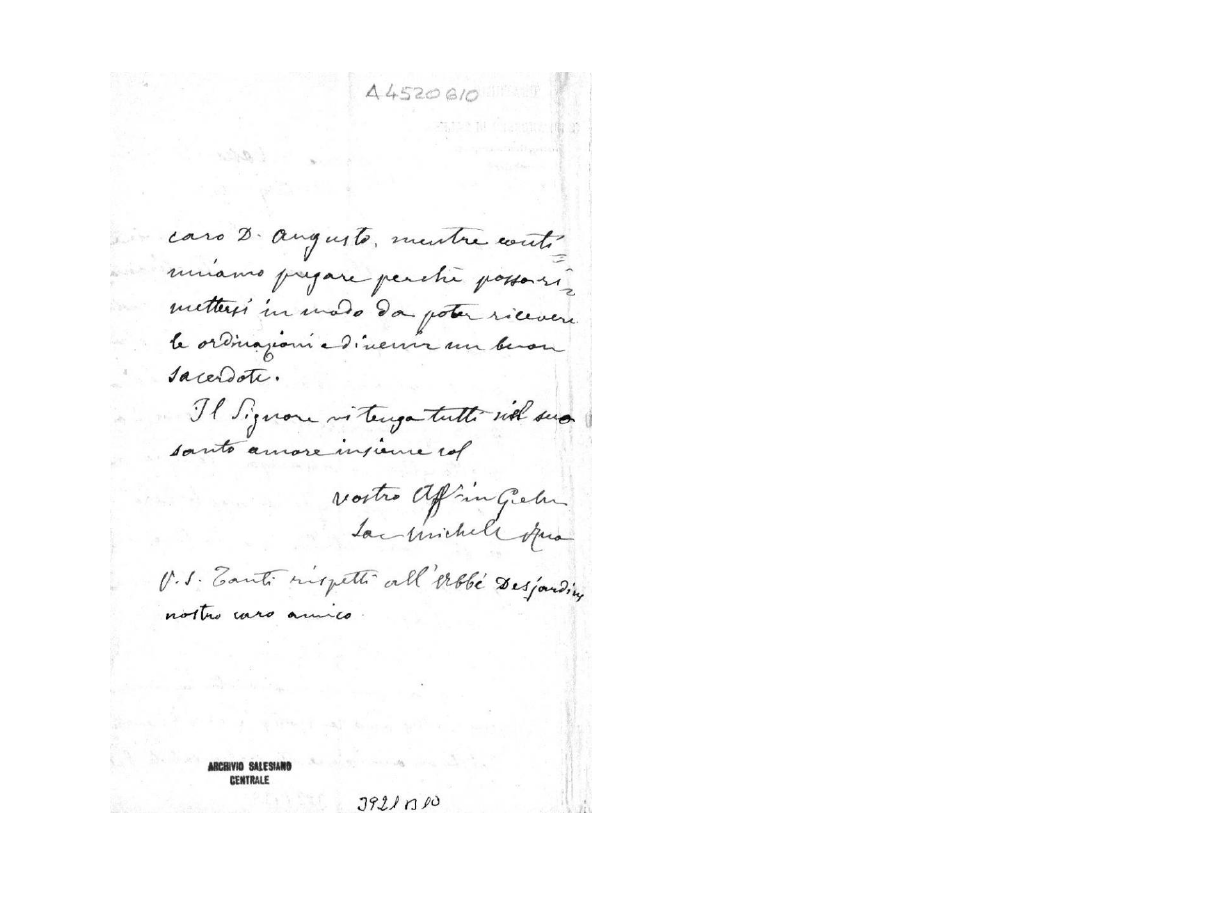 A4520610
caro D. Augusto, mentre conti=
nuiamo pregare perchè possa ri=
mettersi in modo da poter ricevere
le ordinazioni e divenir un buon
sacerdote.
Il Signore vi tenga tutti nel suo
santo amore insieme col
vostro Aff in G
Sac Michele Rua
P.S. Tanti rispetti all'Abbé Desjardins
nostro caro amico.
ARCHIVIO SALESIANO
CENTRALE
3921 B 10